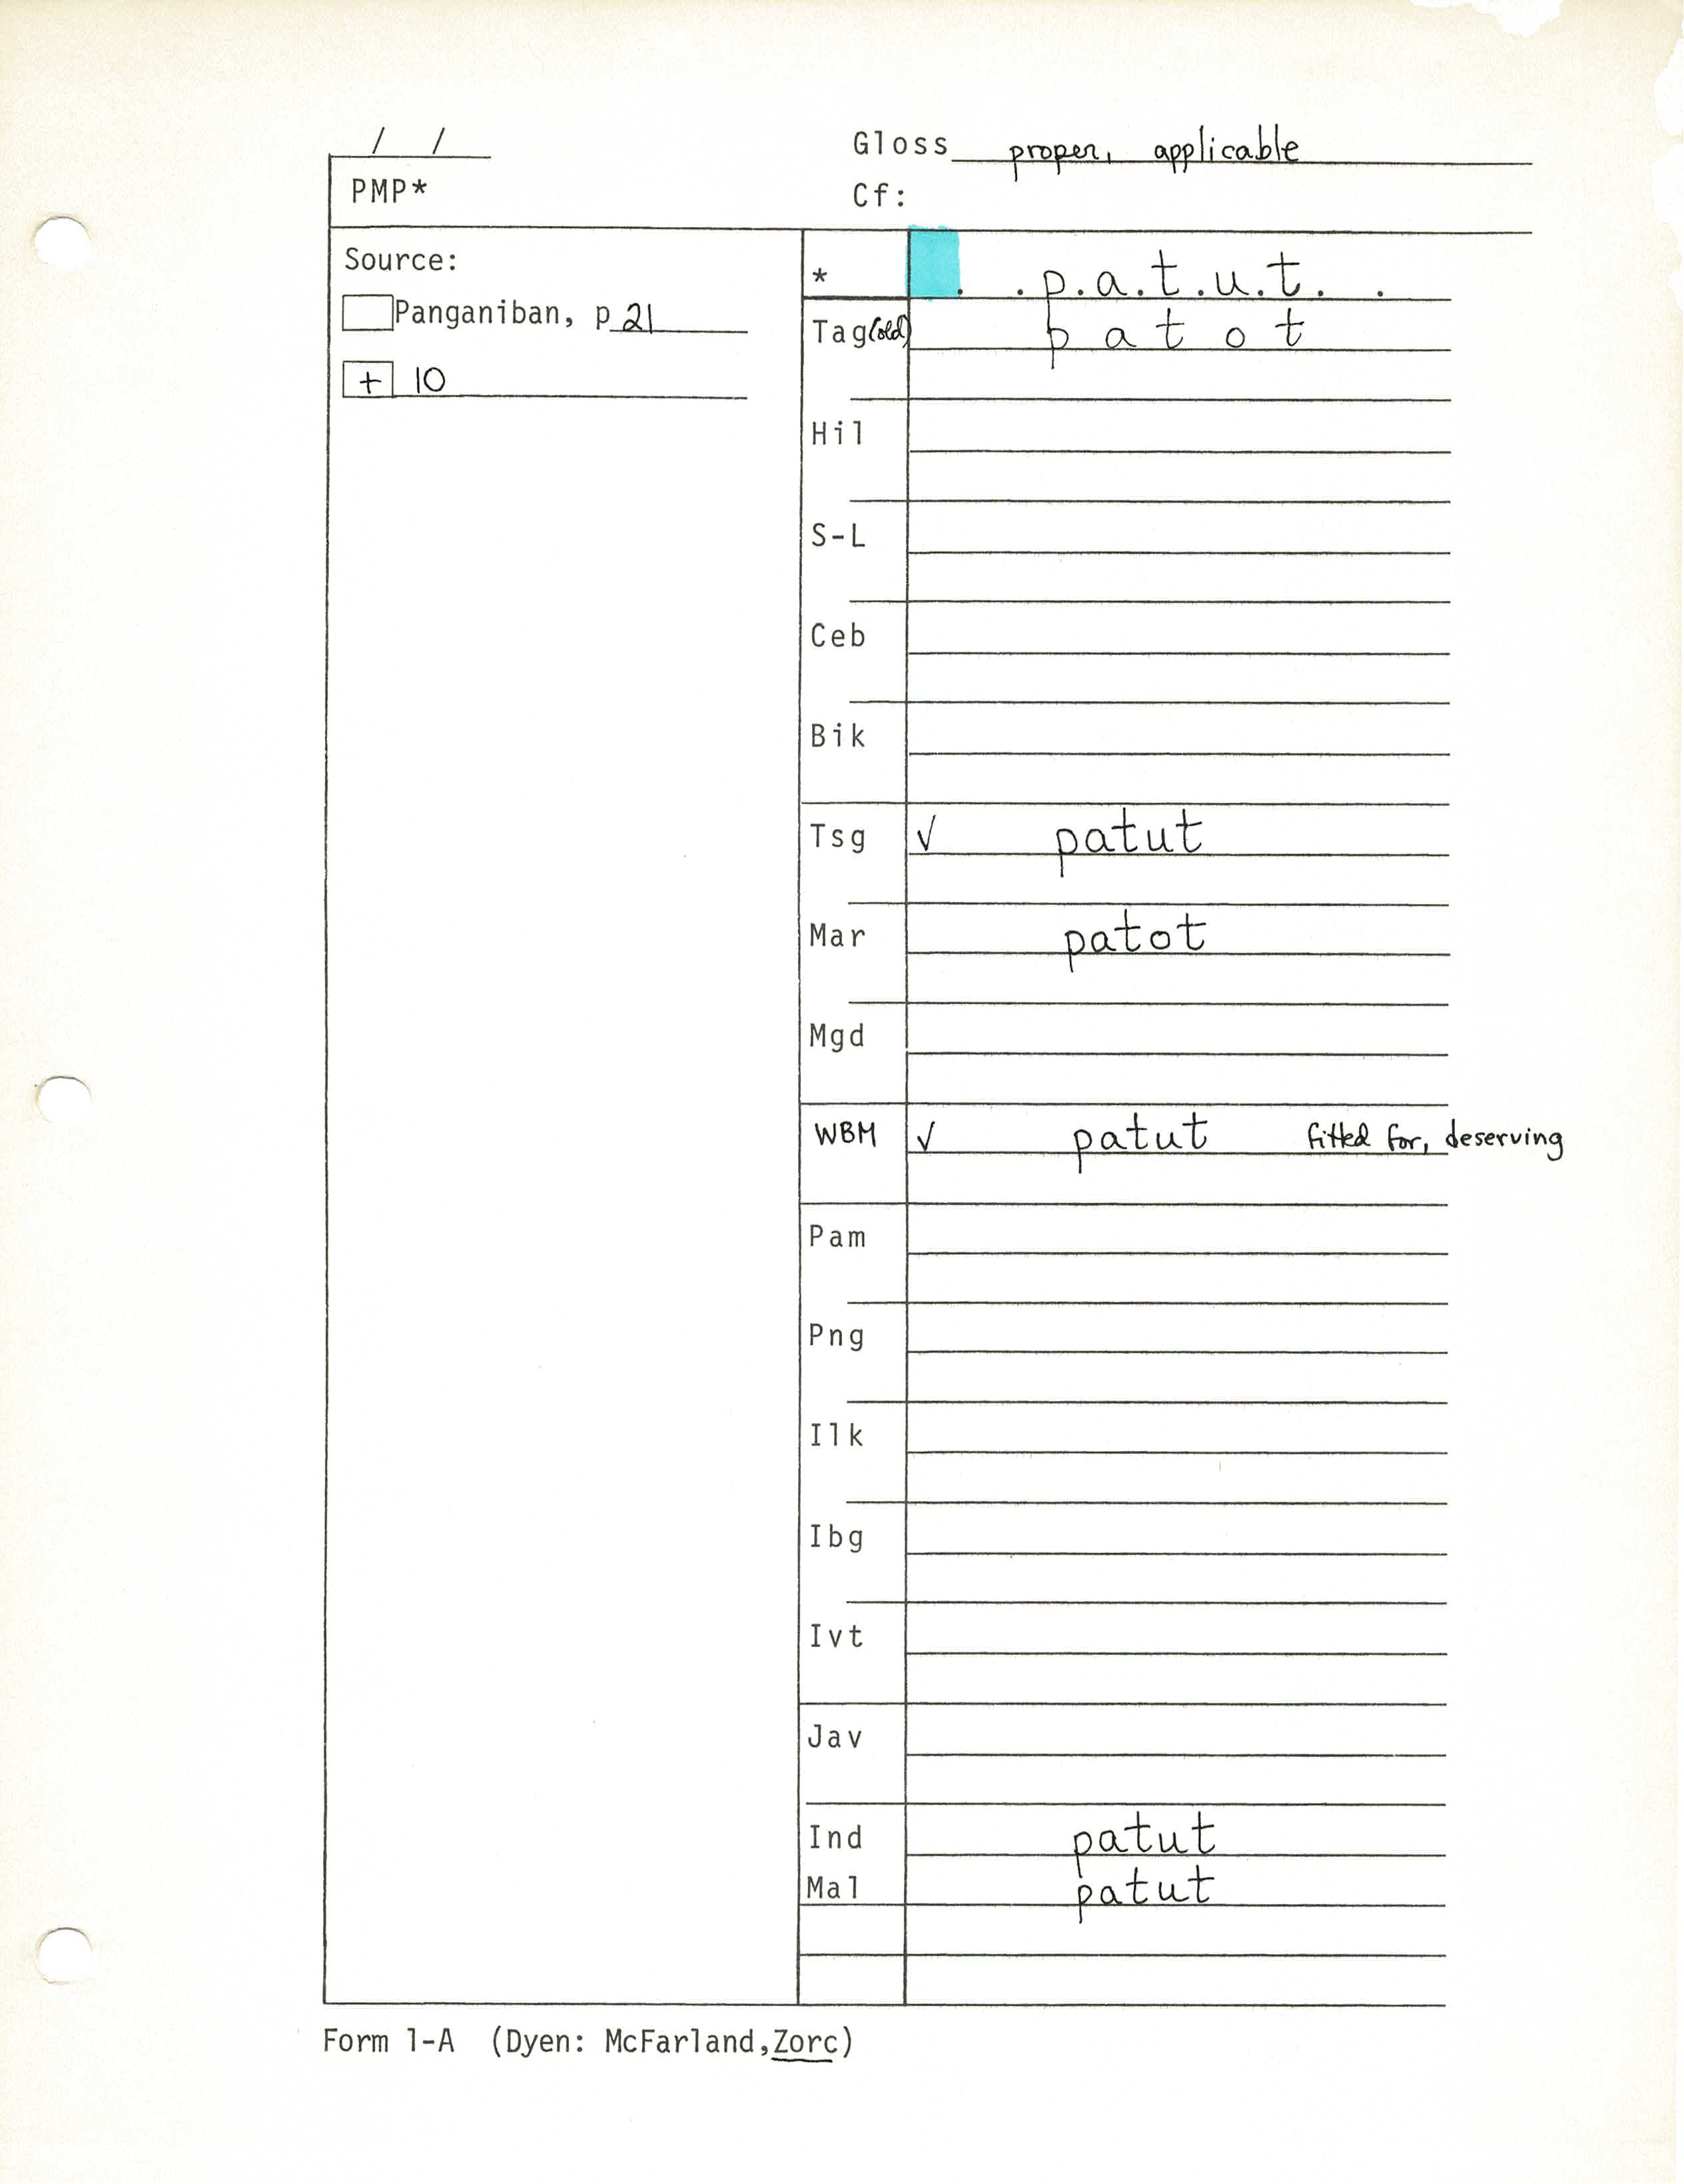 / /
Gloss proper, applicable
PMP*
Cf:
Source:
* . .p.a.t.u.t. .
Panganiban, p 21
Tag(old) p a t o t
+ 10
Hil
S-L
Ceb
Bik
Tsg √ patut
Mar patot
Mgd
WBM √ patut fitted for, deserving
Pam
Png
Ilk
Ibg
Ivt
Jav
Ind patut
Mal patut
Form 1-A (Dyen: McFarland,Zorc)